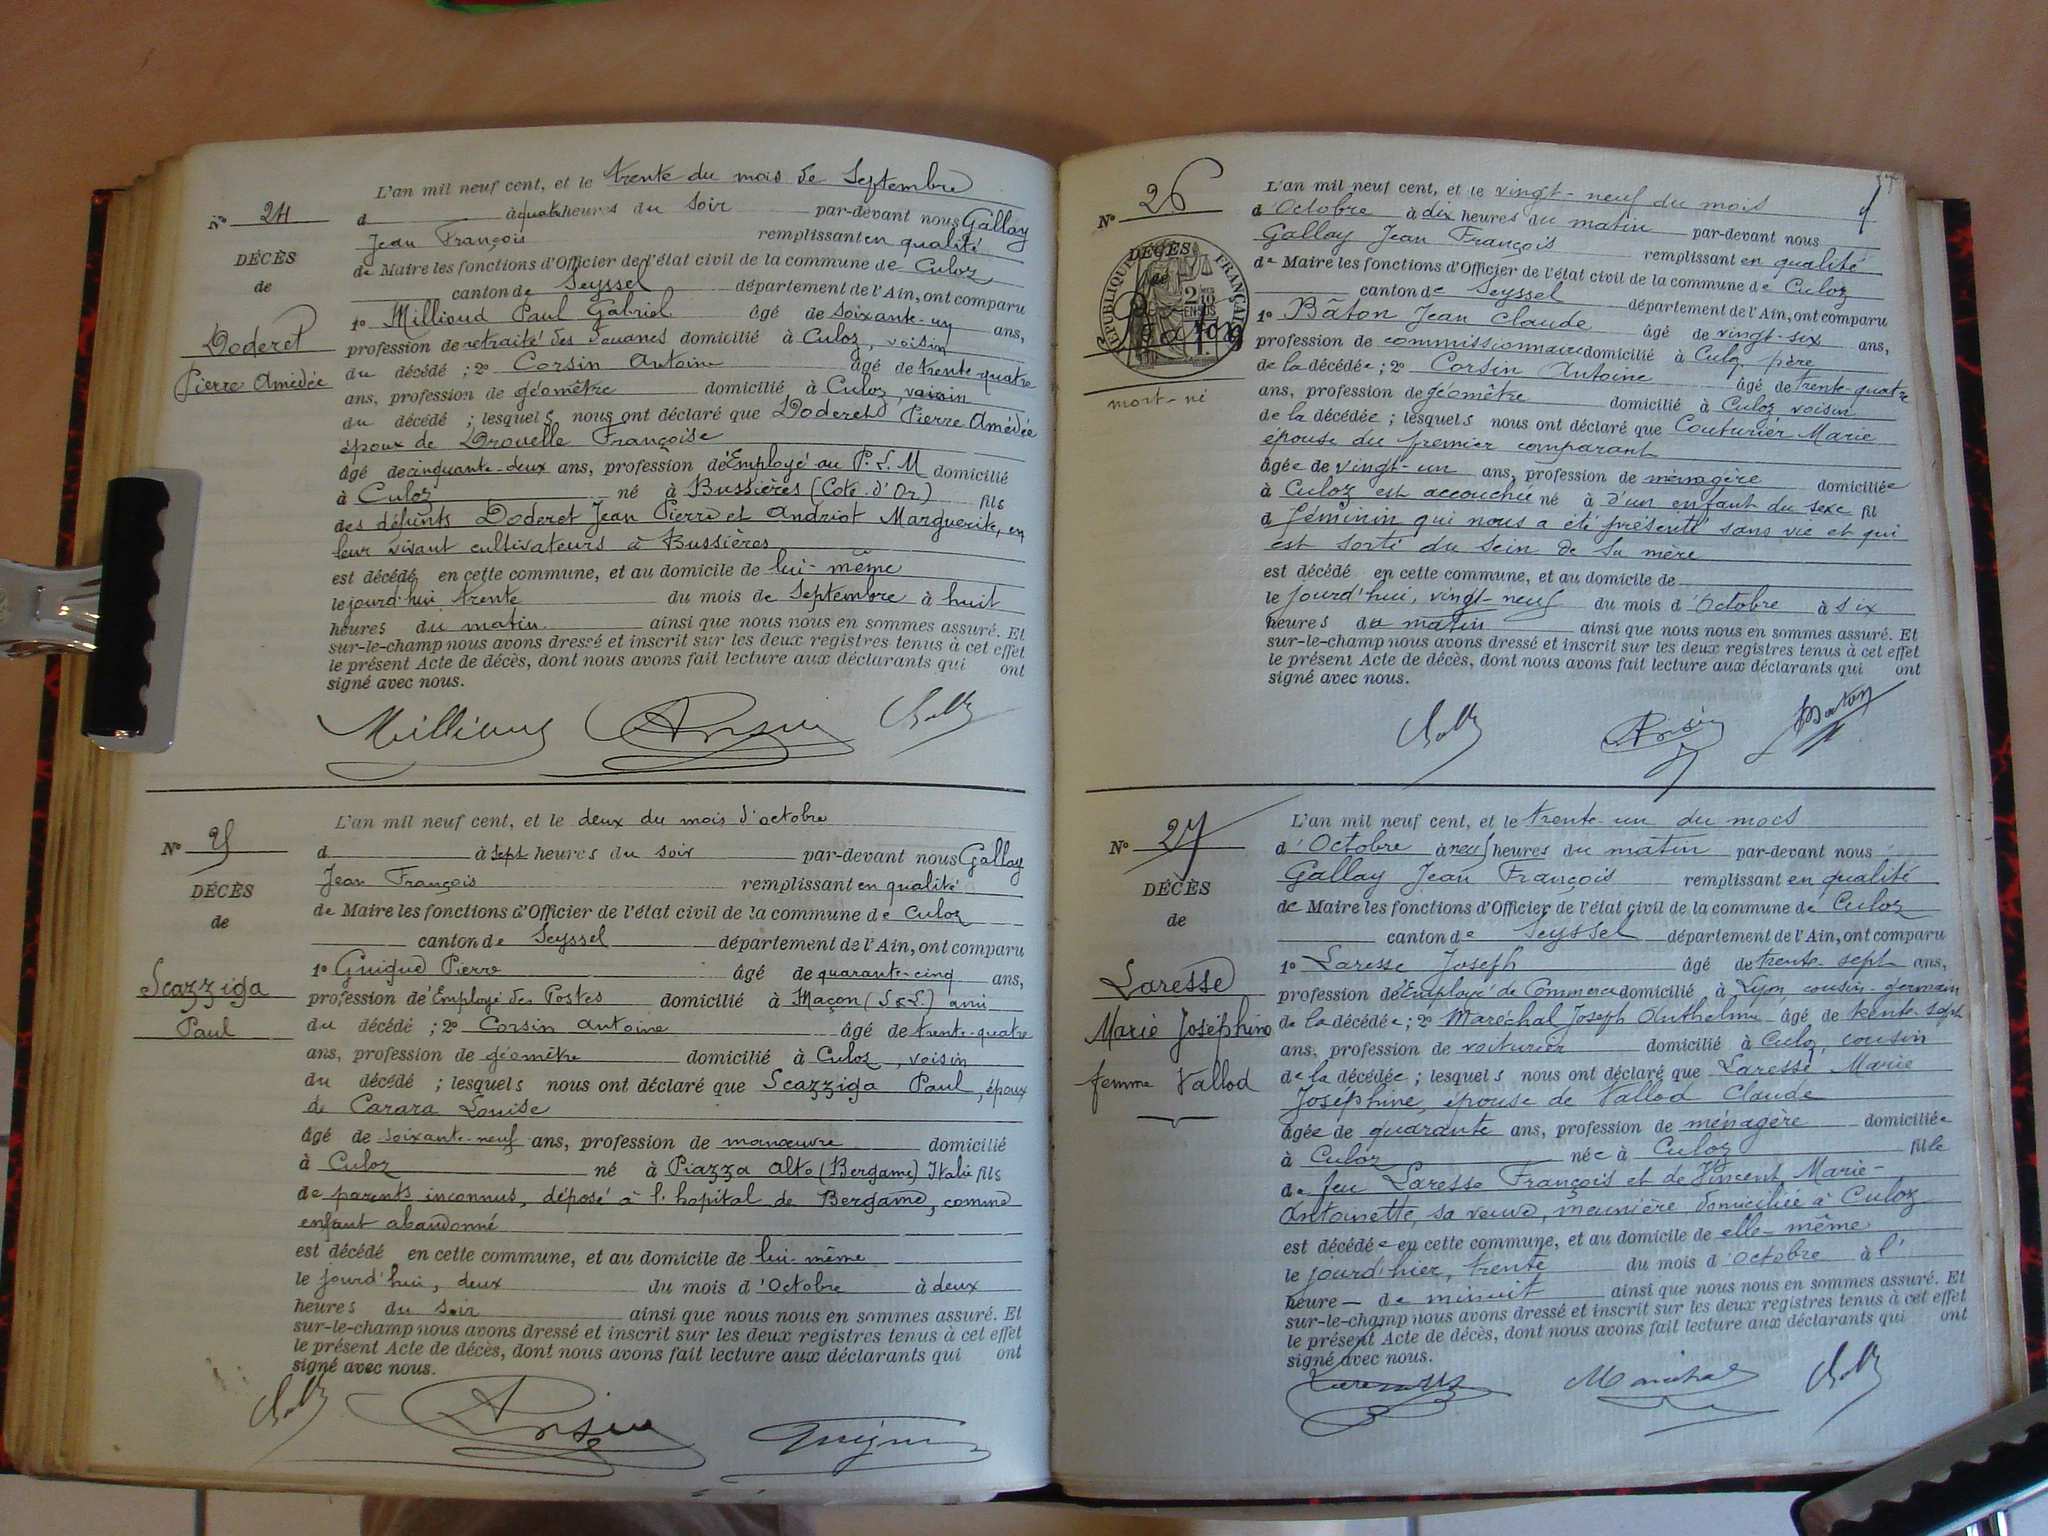 L'an mil neuf cent, et le trente du mois de Septembre
N° 24
d à quatre heures du soir par-devant nous Gallay
Jean François remplissant en qualité
DÉCÈS
de Maire les fonctions d'Officier de l'état civil de la commune de Culoz
de
canton de Seyssel département de l'Ain, ont comparu
1° Millioud Paul Gabriel âgé de soixante-un ans,
Doderet
profession de retraité des Douanes domicilié à Culoz, voisin
Pierre Amédée
du décédé ; 2° Corsin Antoine âgé de trente-quatre
ans, profession de géomètre domicilié à Culoz, voisin
du décédé ; lesquels nous ont déclaré que Doderet Pierre Amédée
époux de Drouelle Françoise
âgé de cinquante-deux ans, profession d'Employé au P.L.M domicilié
à Culoz né à Bussières (Cote d'Or) fils
des défunts Doderet Jean Pierre et Andriot Marguerite, en
leur vivant cultivateurs à Bussières
est décédé en cette commune, et au domicile de lui-même
le jourd'hui trente du mois de Septembre à huit
heures du matin ainsi que nous nous en sommes assuré. Et
sur-le-champ nous avons dressé et inscrit sur les deux registres tenus à cet effet
le présent Acte de décès, dont nous avons fait lecture aux déclarants qui ont
signé avec nous.
Millioud
L'an mil neuf cent, et le deux du mois d'octobre
N° 25
d à sept heures du soir par-devant nous Gallay
Jean François remplissant en qualité
DÉCÈS
de Maire les fonctions d'Officier de l'état civil de la commune de Culoz
de
canton de Seyssel département de l'Ain, ont comparu
1° Guigue Pierre âgé de quarante-cinq ans,
Scazziga
profession d'Employé des Postes domicilié à Maçon (S&L) ami
Paul
du décédé ; 2° Corsin Antoine âgé de trente-quatre
ans, profession de géomètre domicilié à Culoz, voisin
du décédé ; lesquels nous ont déclaré que Scazziga Paul, époux
de Carara Louise
âgé de soixante-neuf ans, profession de manœuvre domicilié
à Culoz né à Piazza Alto (Bergame) Italie fils
de parents inconnus, déposé à l'hopital de Bergame, comme
enfant abandonné
est décédé en cette commune, et au domicile de lui-même
le jourd'hui, deux du mois d'Octobre à deux
heures du soir ainsi que nous nous en sommes assuré. Et
sur-le-champ nous avons dressé et inscrit sur les deux registres tenus à cet effet
le présent Acte de décès, dont nous avons fait lecture aux déclarants qui ont
signé avec nous.
L'an mil neuf cent, et le vingt-neuf du mois
N° 26
d'Octobre à dix heures du matin par-devant nous
Gallay Jean François remplissant en qualité
DÉCÈS
de
RÉPUBLIQUE FRANÇAISE
de Maire les fonctions d'Officier de l'état civil de la commune de Culoz
canton de Seyssel département de l'Ain, ont comparu
1° Bâton Jean Claude âgé de vingt-six ans,
Baton
profession de commissionnaire domicilié à Culoz père
mort-né
de la décédée ; 2° Corsin Antoine âgé de trente-quatre
ans, profession de géomètre domicilié à Culoz, voisin
de la décédée ; lesquels nous ont déclaré que Couturier Marie
épouse du premier comparant
âgée de vingt-un ans, profession de ménagère domiciliée
à Culoz est accouchée né à d'un enfant du sexe fil
d féminin qui nous a été présenté sans vie et qui
est sorti du sein de sa mère
est décédé en cette commune, et au domicile de
le jourd'hui, vingt-neuf du mois d'Octobre à six
heures du matin ainsi que nous nous en sommes assuré. Et
sur-le-champ nous avons dressé et inscrit sur les deux registres tenus à cet effet
le présent Acte de décès, dont nous avons fait lecture aux déclarants qui ont
signé avec nous.
Baton
L'an mil neuf cent, et le trente-un du mois
N° 27
d'Octobre à neuf heures du matin par-devant nous
Gallay Jean François remplissant en qualité
DÉCÈS
de Maire les fonctions d'Officier de l'état civil de la commune de Culoz
de
canton de Seyssel département de l'Ain, ont comparu
1° Laresse Joseph âgé de trente-sept ans,
Laresse
profession d'Employé de Commerce domicilié à Lyon cousin-germain
Marie Joséphine
de la décédée ; 2° Maréchal Joseph Anthelme âgé de trente-sept
ans, profession de voiturier domicilié à Culoz, cousin
femme Vallod
de la décédée ; lesquels nous ont déclaré que Laresse Marie
Joséphine, épouse de Vallod Claude
âgée de quarante ans, profession de ménagère domiciliée
à Culoz née à Culoz fille
de feu Laresse François et de Vincent Marie-
Antoinette, sa veuve, meunière, domiciliée à Culoz
est décédée en cette commune, et au domicile de elle-même
le jourd'hier, trente du mois d'Octobre à l'
heure de minuit ainsi que nous nous en sommes assuré. Et
sur-le-champ nous avons dressé et inscrit sur les deux registres tenus à cet effet
le présent Acte de décès, dont nous avons fait lecture aux déclarants qui ont
signé avec nous.
Maréchal